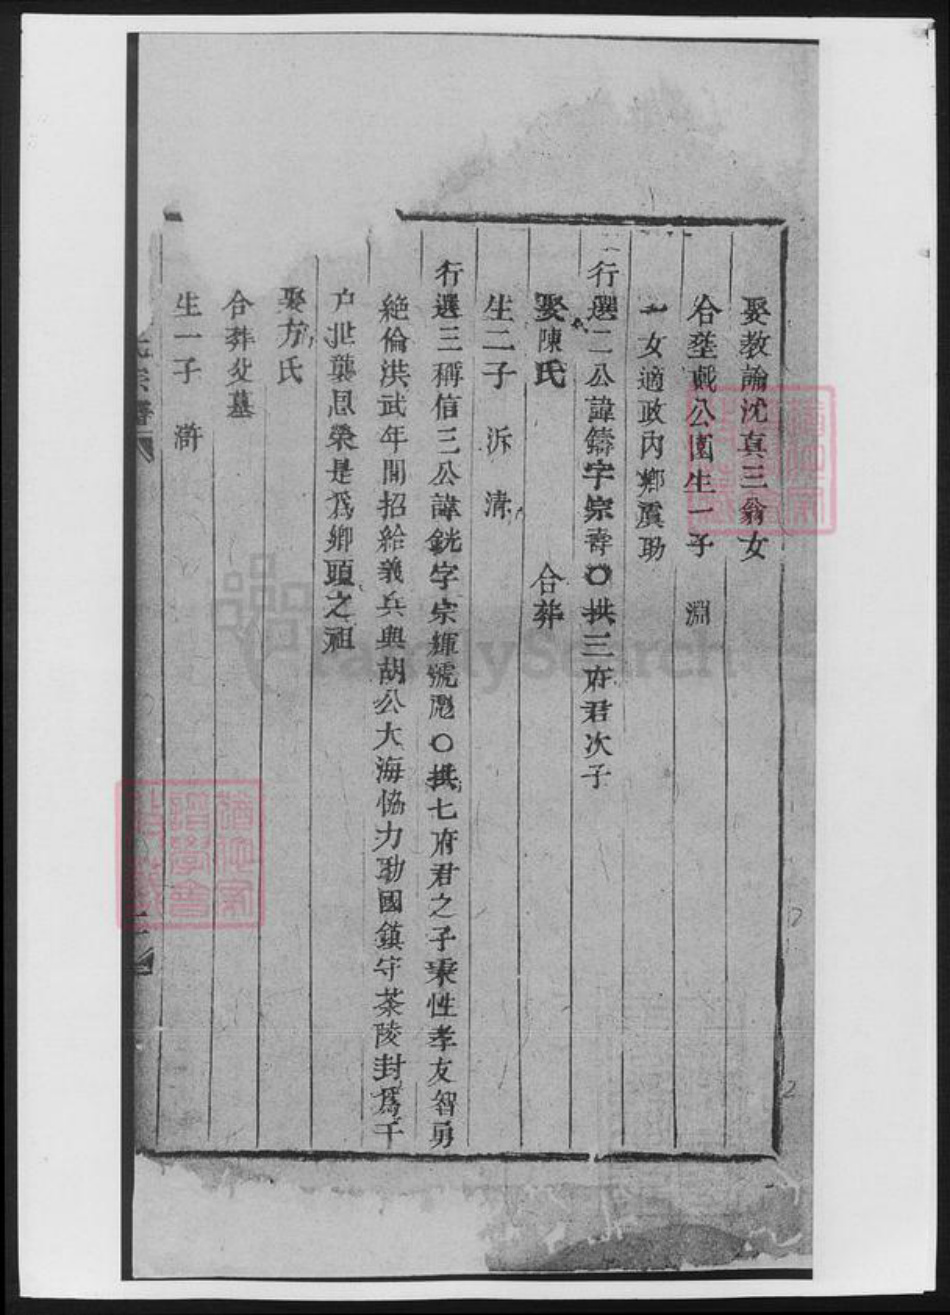 娶教諭沈真三翁女
合塟戲公園生一子 淵
一女適政內鄉虞助
行選二公諱鑄字宗壽〇拱三府君次子
娶陳氏 合葬
生二子 泝 清
行選三稱信三公諱銧字宗輝號彪〇拱七府君之子秉性孝友智勇
絶倫洪武年間招給義兵與胡公大海恊力助國鎮守茶陵封爲千
户世襲恩榮是爲鄉頭之祖
娶方氏
合葬父墓
生一子 滸
FamilySearch